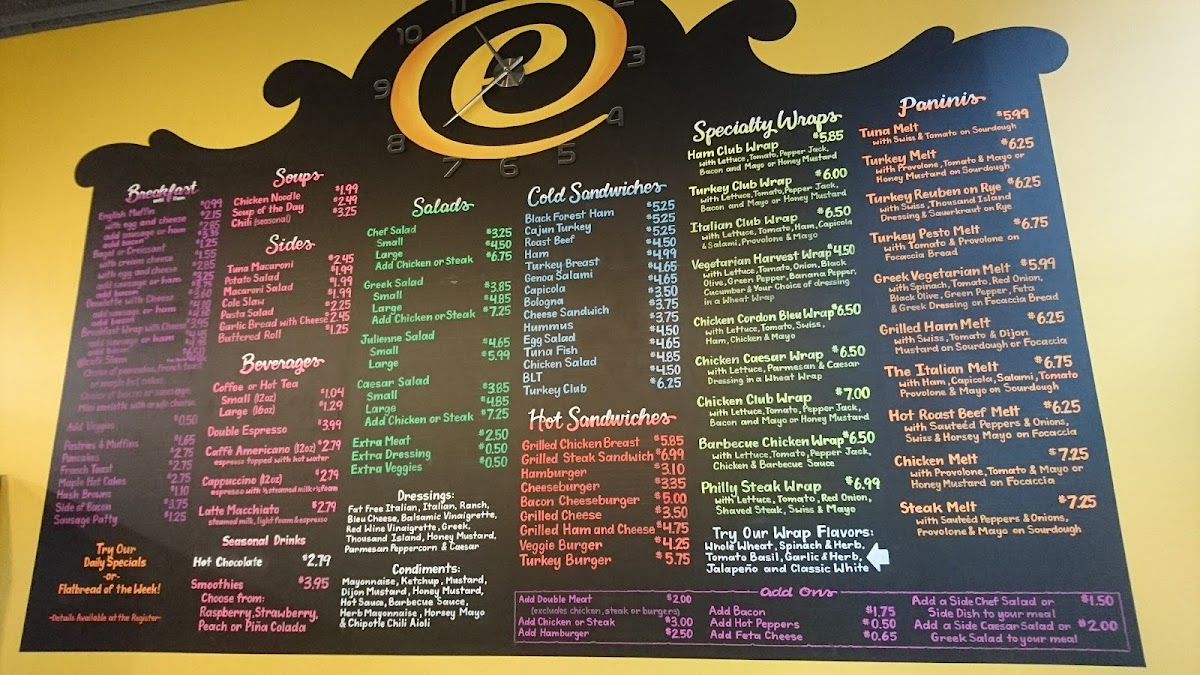 11
2
10
3
9
4
8
5
7
6
Breakfast
English Muffin $0.99
with egg and cheese $2.15
add sausage or ham
add bacon
Bagel or Croissant $1.25
with cream cheese $1.55
with egg and cheese $2.85
add sausage or ham
add bacon
Omelette with Cheese
add sausage or ham
add bacon
Breakfast Wrap with Cheese $3.95
add sausage or ham
add bacon
Choice of pancakes, french toast
Choice of bacon or sausage
Add Veggies $0.50
Pastries & Muffins $1.65
Pancakes $2.75
French Toast $2.75
Maple Hot Cakes $2.75
Hash Brows $1.10
Side of Bacon $3.75
Sausage Patty $1.25
Try Our
Daily Specials
-or-
Flatbread of the Week!
-Details Available at the Register-
Soups
Chicken Noodle $1.99
Soup of the Day $2.49
Chili (seasonal) $3.25
Sides
Tuna Macaroni $2.45
Potato Salad $1.99
Macaroni Salad $1.99
Cole Slaw $1.99
Pasta Salad $2.25
Garlic Bread with Cheese $2.45
Buttered Roll $1.25
Beverages
Coffee or Hot Tea
Small (12oz) $1.04
Large (16oz) $1.29
Double Espresso $3.99
Caffè Americano (12oz) $2.79
espresso topped with hot water
Cappuccino (12oz) $2.79
espresso with ½ steamed milk + ½ foam
Latte Macchiato $2.79
steamed milk, light foam & espresso
Seasonal Drinks
Hot Chocolate $2.79
Smoothies $3.95
Choose from:
Raspberry, Strawberry,
Peach or Piña Colada
Salads
Chef Salad
Small $3.25
Large $4.50
Add Chicken or Steak $6.75
Greek Salad
Small $3.85
Large $4.85
Add Chicken or Steak $7.25
Julienne Salad
Small $4.65
Large $5.99
Caesar Salad
Small $3.85
Large $4.85
Add Chicken or Steak $7.25
Extra Meat $2.50
Extra Dressing $0.50
Extra Veggies $0.50
Dressings:
Fat Free Italian, Italian, Ranch,
Bleu Cheese, Balsamic Vinaigrette,
Red Wine Vinaigrette, Greek,
Thousand Island, Honey Mustard,
Parmesan Peppercorn & Caesar
Condiments:
Mayonnaise, Ketchup, Mustard,
Dijon Mustard, Honey Mustard,
Hot Sauce, Barbecue Sauce,
Herb Mayonnaise, Horsey Mayo
& Chipotle Chili Aioli
Cold Sandwiches
Black Forest Ham $5.25
Cajun Turkey $5.25
Roast Beef $5.25
Ham $4.50
Turkey Breast $4.99
Genoa Salami $4.65
Capicola $4.65
Bologna $3.50
Cheese Sandwich $3.75
Hummus $3.75
Egg Salad $4.50
Tuna Fish $4.65
Chicken Salad $4.85
BLT $4.50
Turkey Club $6.25
Hot Sandwiches
Grilled Chicken Breast $5.85
Grilled Steak Sandwich $6.99
Hamburger $3.10
Cheeseburger $3.35
Bacon Cheeseburger $5.00
Grilled Cheese $3.50
Grilled Ham and Cheese $4.75
Veggie Burger $4.25
Turkey Burger $5.75
Specialty Wraps
Ham Club Wrap $5.85
with Lettuce, Tomato, Pepper Jack,
Bacon and Mayo or Honey Mustard
Turkey Club Wrap $6.00
with Lettuce, Tomato, Pepper Jack,
Bacon and Mayo or Honey Mustard
Italian Club Wrap $6.50
with Lettuce, Tomato, Ham, Capicola
& Salami, Provolone & Mayo
Vegetarian Harvest Wrap $4.50
with Lettuce, Tomato, Onion, Black
Olive, Green Pepper, Banana Pepper,
Cucumber & Your Choice of dressing
in a Wheat Wrap
Chicken Cordon Bleu Wrap $6.50
with Lettuce, Tomato, Swiss,
Ham, Chicken & Mayo
Chicken Caesar Wrap $6.50
with Lettuce, Parmesan & Caesar
Dressing in a Wheat Wrap
Chicken Club Wrap $7.00
with Lettuce, Tomato, Pepper Jack,
Bacon and Mayo or Honey Mustard
Barbecue Chicken Wrap $6.50
with Lettuce, Tomato, Pepper Jack,
Chicken & Barbecue Sauce
Philly Steak Wrap $6.99
with Lettuce, Tomato, Red Onion,
Shaved Steak, Swiss & Mayo
Try Our Wrap Flavors:
Whole Wheat, Spinach & Herb,
Tomato Basil, Garlic & Herb,
Jalapeño and Classic White
Paninis
Tuna Melt $5.99
with Swiss & Tomato on Sourdough
Turkey Melt $6.25
with Provolone, Tomato & Mayo or
Honey Mustard on Sourdough
Turkey Reuben on Rye $6.25
with Swiss, Thousand Island
Dressing & Sauerkraut on Rye
Turkey Pesto Melt $6.75
with Tomato & Provolone on
Focaccia Bread
Greek Vegetarian Melt $5.99
with Spinach, Tomato, Red Onion,
Black Olive, Green Pepper, Feta
& Greek Dressing on Focaccia Bread
Grilled Ham Melt $6.25
with Swiss, Tomato & Dijon
Mustard on Sourdough or Focaccia
The Italian Melt $6.75
with Ham, Capicola, Salami, Tomato
Provolone & Mayo on Sourdough
Hot Roast Beef Melt $6.25
with Sauteéd Peppers & Onions,
Swiss & Horsey Mayo on Focaccia
Chicken Melt $7.25
with Provolone, Tomato & Mayo or
Honey Mustard on Focaccia
Steak Melt $7.25
with Sauteéd Peppers & Onions,
Provolone & Mayo on Sourdough
Add Ons
Add Double Meat $2.00
(excludes chicken, steak or burgers)
Add Chicken or Steak $3.00
Add Hamburger $2.50
Add Bacon $1.75
Add Hot Peppers $0.50
Add Feta Cheese $0.65
Add a Side Chef Salad or $1.50
Side Dish to your meal
Add a Side Caesar Salad or $2.00
Greek Salad to your meal